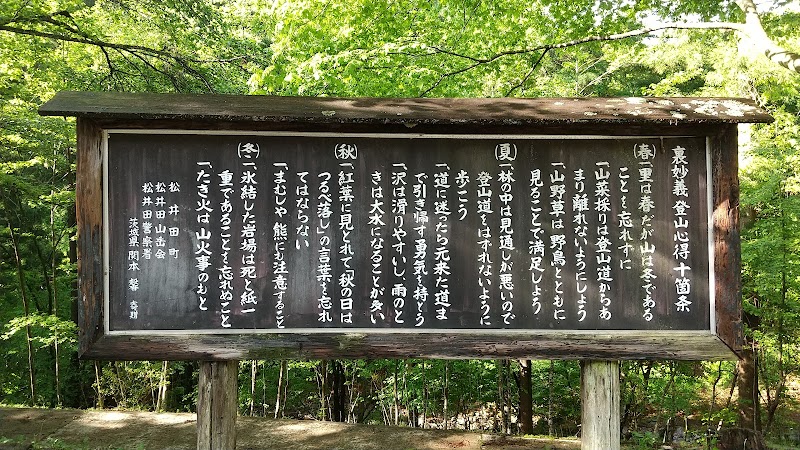 裏妙義登山心得十箇条
㊗春一里は春だが山は冬である
ことを忘れずに
一山菜採りは登山道からあ
まり離れないようにしよう
一山野草は野鳥とともに
見ることで満足しよう
夏一林の中は見通しが悪いので
登山道をはずれないように
歩こう
一道に迷ったら元来た道ま
で引き帰す勇気を持とう
一沢は滑りやすいし、雨のと
きは大水になることが多い
秋一紅葉に見とれて「秋の日は
つるべ落し」の言葉を忘れ
てはならない
一まむしや熊にも注意すること
冬一氷結した岩場は死と紙一
重であることを忘れぬこと
一たき火は山火事のもと
松井田町
松井田山岳会
松井田警察署
茨城県 関本